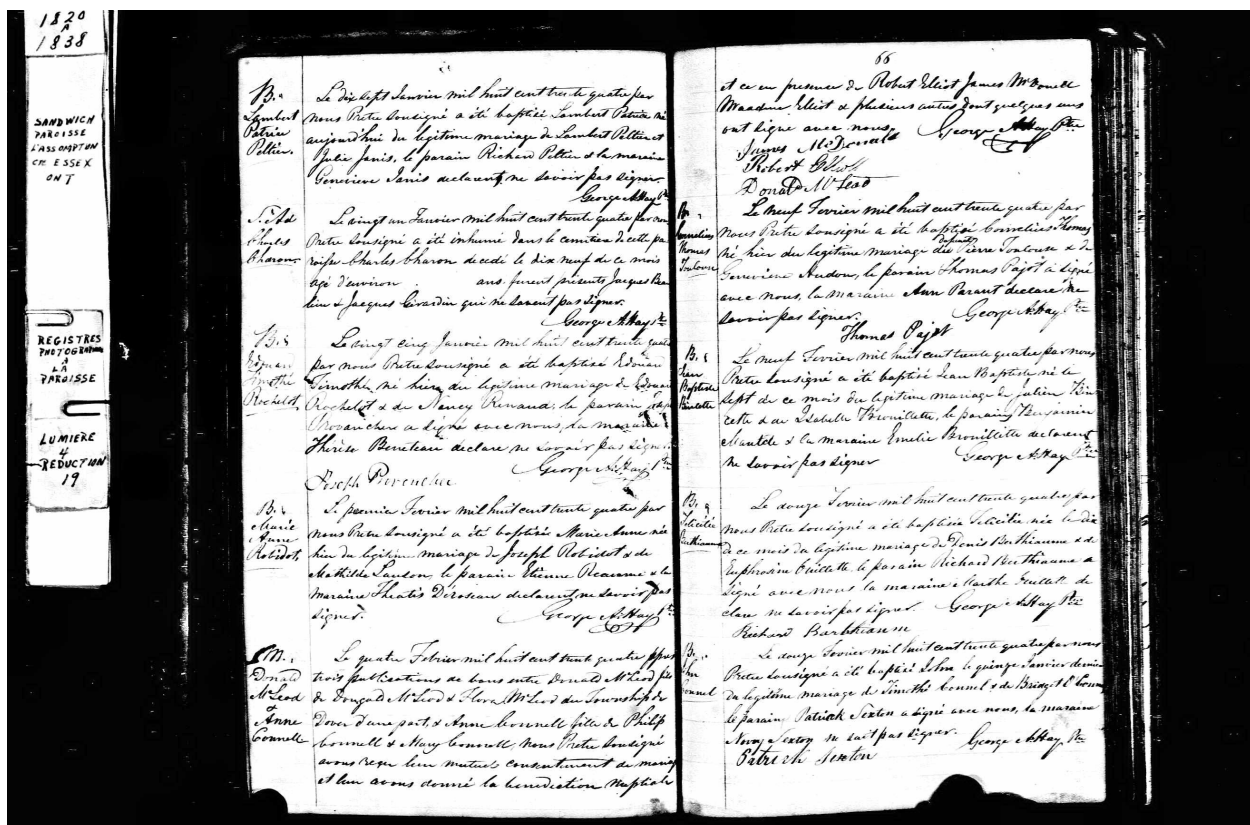 1820
A
1838
SANDWICH
PAROISSE
L'ASSOMPTION
CTE ESSEX
ONT
REGISTRES
PHOTOGRAPHIÉ
A
LA
PAROISSE
LUMIERE
4
REDUCTION
19
B.
Lambert
Patrice
Peltier.
Le dix sept Janvier mil huit cent trente quatre par
nous Pretre Sousigné a été baptisé Lambert Patrice né
aujourd'hui du legitime mariage de Lambert Peltier et
Julie Janis, le parain Richard Peltier & la maraine
Genevieve Janis declarent ne savoir pas signer
George A. Hay Ptre
Charles
Charon
Le vingt un Janvier mil huit cent trente quatre par nous
Pretre Sousigné a été inhumé dans le cimetiere de cette pa
roisse Charles Charon decedé le dix neuf de ce mois
agé d'environ ans. furent présents Jacques Beau
lieu & Jacques Girardin qui ne savent pas signer.
George A. Hay Ptre
B.
Edouard
Timothé
Rochelot
Le vingt cinq Janvier mil huit cent trente quatre
par nous Pretre Sousigné a été baptisé Edouard
Timothé, né hier du legitime mariage de Edouard
Rochelot & de Nancy Renaud; le parain Joseph
Provencher a signé avec nous, la maraine
Thérèse Beneteau declare ne savoir pas signer
George A. Hay Ptre
Joseph Provencher
B.
Marie
Anne
Robidot
Le premier Fevrier mil huit cent trente quatre par
nous Pretre Sousigné a été baptisée Marie Anne née
hier du legitime mariage de Joseph Robidot & de
Mathilde Lauson, le parain Etienne Reaume & la
maraine declarent ne savoir pas
signer.
George A. Hay Ptre
M.
Donald
McLeod
&
Anne
Connell
Le quatre Febrier mil huit cent trente quatre apres
trois publications de bans entre Donald McLeod fils
de Dougald McLeod & Flora McLeod du Township de
Dover d'une part, & Anne Connell fille de Philip
Connell & Mary Connell, nous Pretre Sousigné
avons reçu leur mutuel consentement de mariage
et leur avons donné la benediction nuptiale
66
et ce en presence de Robert Elliot James McDonell
Elliot & plusieurs autres dont quelques uns
ont signé avec nous
George A. Hay Ptre
James McDonald
Robert Elliot
Donald McLeod
B.
Cornelius
Thomas
Toulouse
Le neuf Fevrier mil huit cent trente quatre par
nous Pretre Sousigné a été baptisé Cornelius Thomas
né hier du legitime mariage de defunt Pierre Toulouse & de
Genevieve Audou, le parain Thomas Pajot a signé
avec nous, la maraine Ann Parant declare ne
savoir pas signer.
George A. Hay Ptre
Thomas Pajot
B.
Jean
Baptiste
Binlette
Le neuf Fevrier mil huit cent trente quatre par nous
Pretre Sousigné a été baptisé Jean Baptiste né le
sept de ce mois du legitime mariage de Julien Bin
lette & de Isabelle Brouillette, le parain Benjamin
& la maraine Emelie Brouillette declarent
ne savoir pas signer
George A. Hay Ptre
B.
Felicitée
Berthiaume
Le douze Fevrier mil huit cent trente quatre par
nous Pretre Sousigné a été baptisée Felicitée née le dix
de ce mois du legitime mariage de Denis Berthiaume & de
Euphrosine Ouillette le parain Richard Berthiaume a
signé avec nous la maraine Marthe Ouellett de
clare ne savoir pas signer.
George A. Hay Ptre
Richard Barthiaum
B.
John
Connel
Le douze Fevrier mil huit cent trente quatre par nous
Pretre Sousigné a été baptisé John le quinze Janvier dernier
du legitime mariage de Timothé Connel & de Bridget
le parain Patrick Sexton a signé avec nous, la maraine
Sexton ne sait pas signer.
George A. Hay Ptre
Patrick Sexton